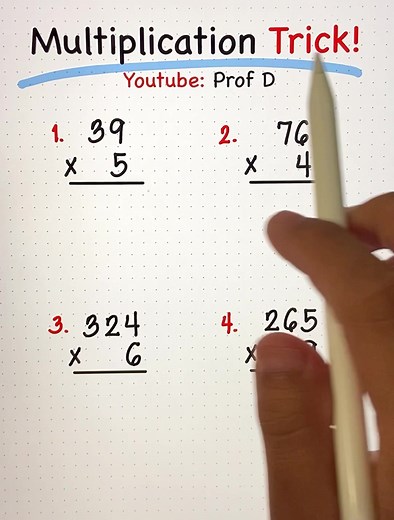 Multiplication Trick!
Youtube: Prof D
1. 39
x 5
2. 76
x 4
3. 324
x 6
4. 265
x